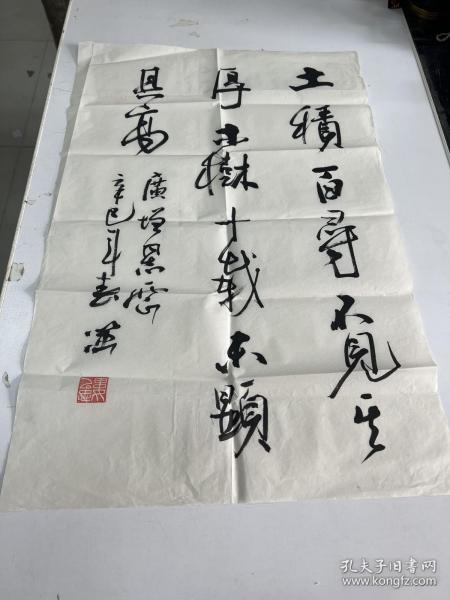 土積百尋不見其
厚木樹十載未顯
其高
廣增
辛巳年春
孔夫子旧书网
www.kongfz.com